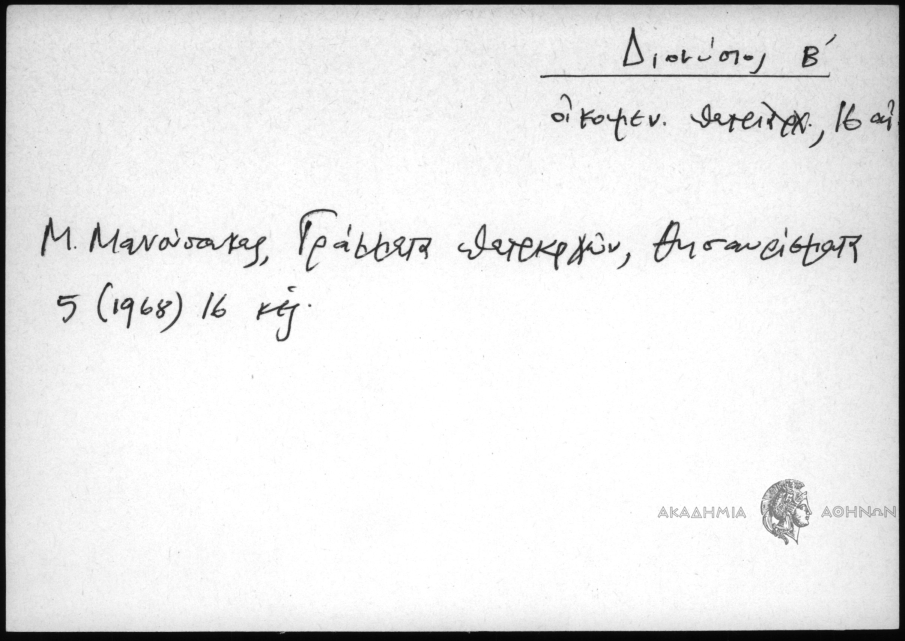 Διονύσιος Β΄
οἰκουμεν. πατριάρχ., 16 αἰ.
Μ. Μανούσακας, Γράμματα πατριαρχῶν, Θησαυρίσματα
5 (1968) 16 κἑξ.
ΑΚΑΔΗΜΙΑ ΑΘΗΝΩΝ